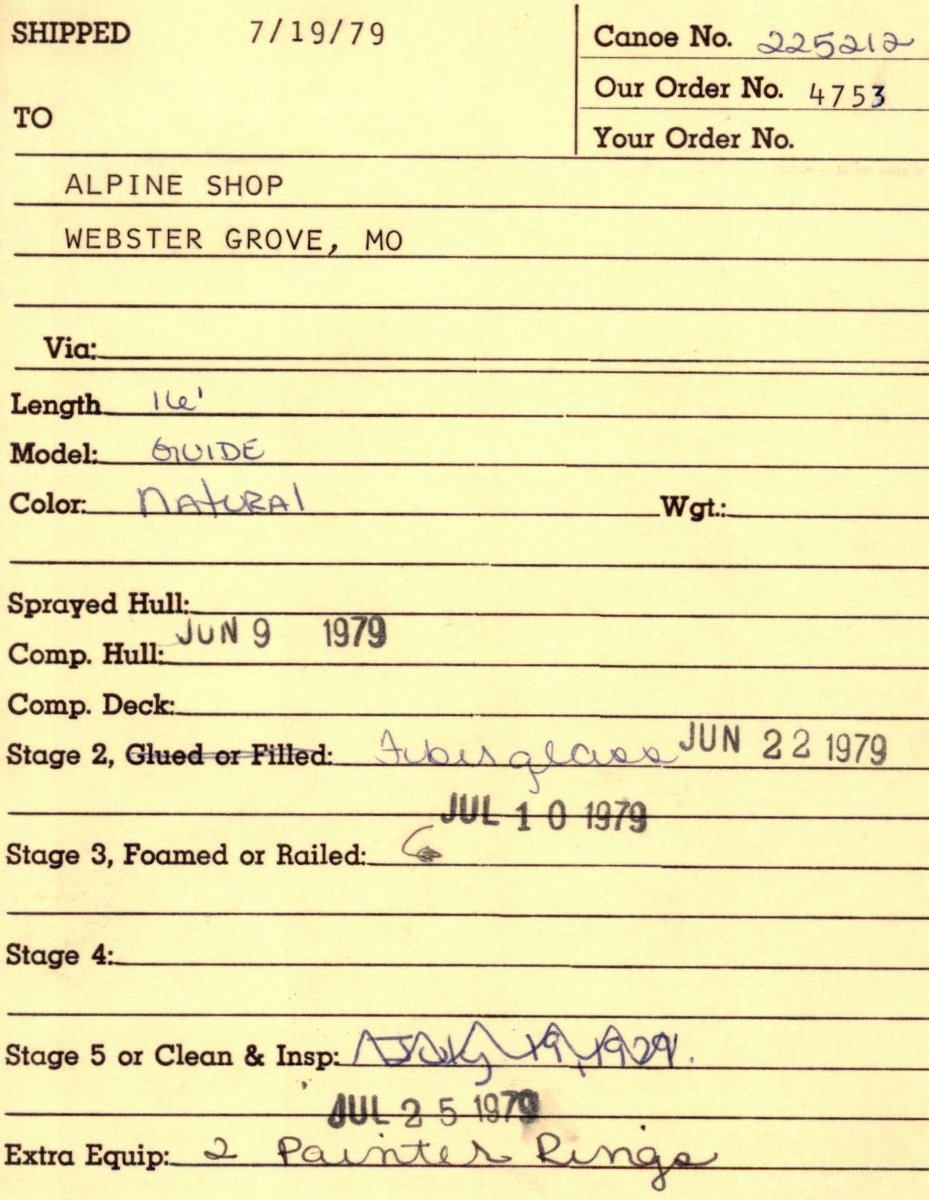 SHIPPED 7/19/79
Canoe No. 225212
Our Order No. 4753
TO
Your Order No.
ALPINE SHOP
WEBSTER GROVE, MO
Via:
Length 16'
Model: GUIDE
Color: Natural Wgt.:
Sprayed Hull:
Comp. Hull: JUN 9 1979
Comp. Deck:
Stage 2, Glued or Filled: Fiberglass JUN 22 1979
JUL 10 1979
Stage 3, Foamed or Railed:
Stage 4:
Stage 5 or Clean & Insp: July 19, 1979
JUL 25 1979
Extra Equip: 2 Painter Rings